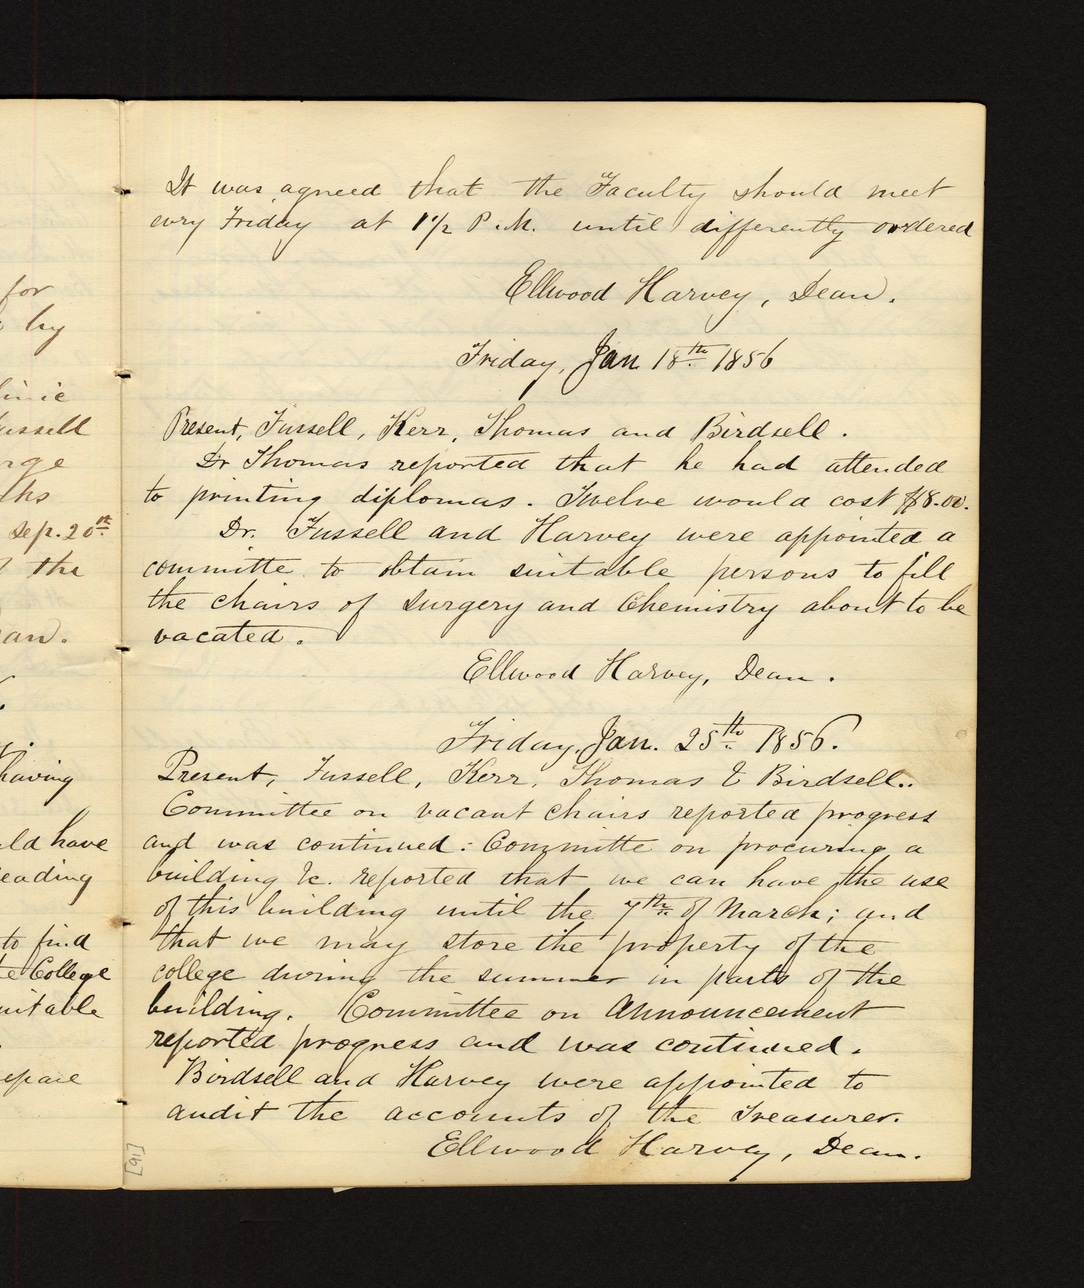 for
by
inic
ussell
rge
ths
Sep. 20th
the
an.
having
ld have
eading
to find
te College
uitable
epare
It was agreed that the Faculty should meet
evry Friday at 1 1/2 P.M. until differently ordered
Ellwood Harvey, Dean.
Friday, Jan 18th 1856
Present, Fussell, Kerr, Thomas and Birdsell.
Dr Thomas reported that he had attended
to printing diplomas. Twelve would cost $8.00.
Dr. Fussell and Harvey were appointed a
committe to obtain suitable persons to fill
the chairs of Surgery and Chemistry about to be
vacated.
Ellwood Harvey, Dean.
Friday, Jan. 25th 1856.
Present, Fussell, Kerr, Thomas & Birdsell.
Committee on vacant chairs reported progress
and was continued. Committe on procuring a
building &c. reported that we can have the use
of this building until the 7th of March; and
that we may store the property of the
college during the summer in parts of the
building. Committee on Announcement
reported progress and was continued.
Birdsell and Harvey were appointed to
audit the accounts of the Treasurer.
Ellwood Harvey, Dean.
[91]